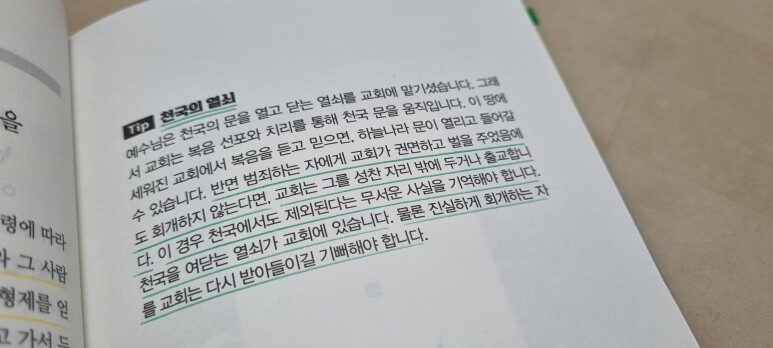 을
령에 따라
와 그 사람
형제를 얻
고 가서 두
Tip 천국의 열쇠
예수님은 천국의 문을 열고 닫는 열쇠를 교회에 맡기셨습니다. 그래
서 교회는 복음 선포와 치리를 통해 천국 문을 움직입니다. 이 땅에
세워진 교회에서 복음을 듣고 믿으면, 하늘나라 문이 열리고 들어갈
수 있습니다. 반면 범죄하는 자에게 교회가 권면하고 벌을 주었음에
도 회개하지 않는다면, 교회는 그를 성찬 자리 밖에 두거나 출교합니
다. 이 경우 천국에서도 제외된다는 무서운 사실을 기억해야 합니다.
천국을 여닫는 열쇠가 교회에 있습니다. 물론 진실하게 회개하는 자
를 교회는 다시 받아들이길 기뻐해야 합니다.